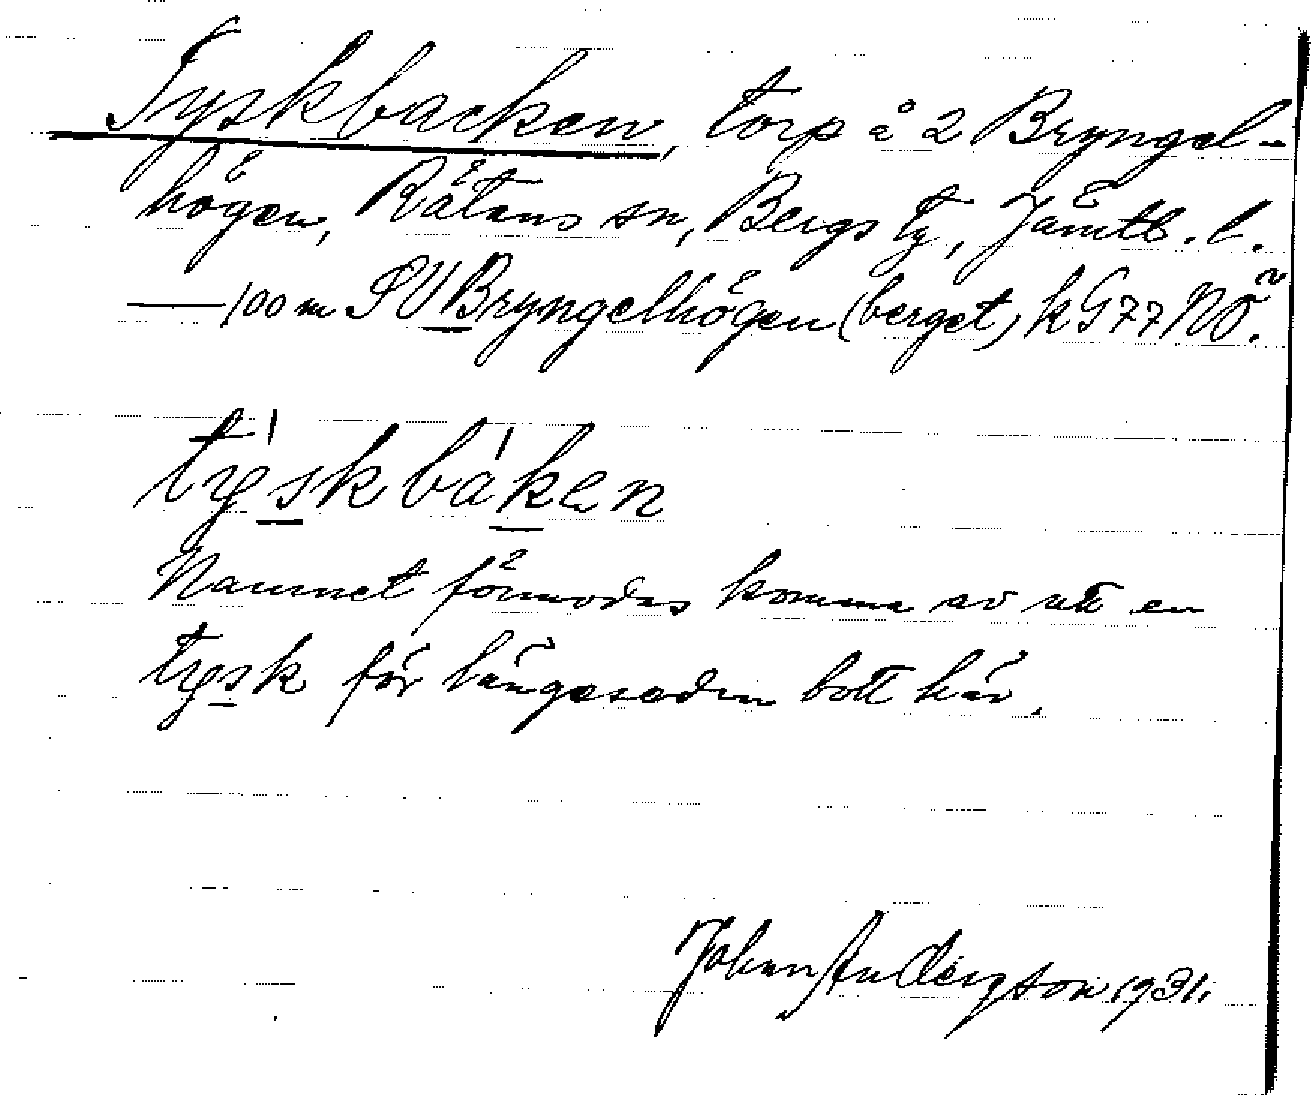 Tyskbacken, torp å 2 Bryngel-
högen, Rätans sn, Bergs tg, Jämtl. l.
— 100 m SV Bryngelhögen (berget) k G 77 NÖ.
týskbáken
Namnet förmodas komma av att en
tysk för längesedan bott här.
Johan Andersson 1931.